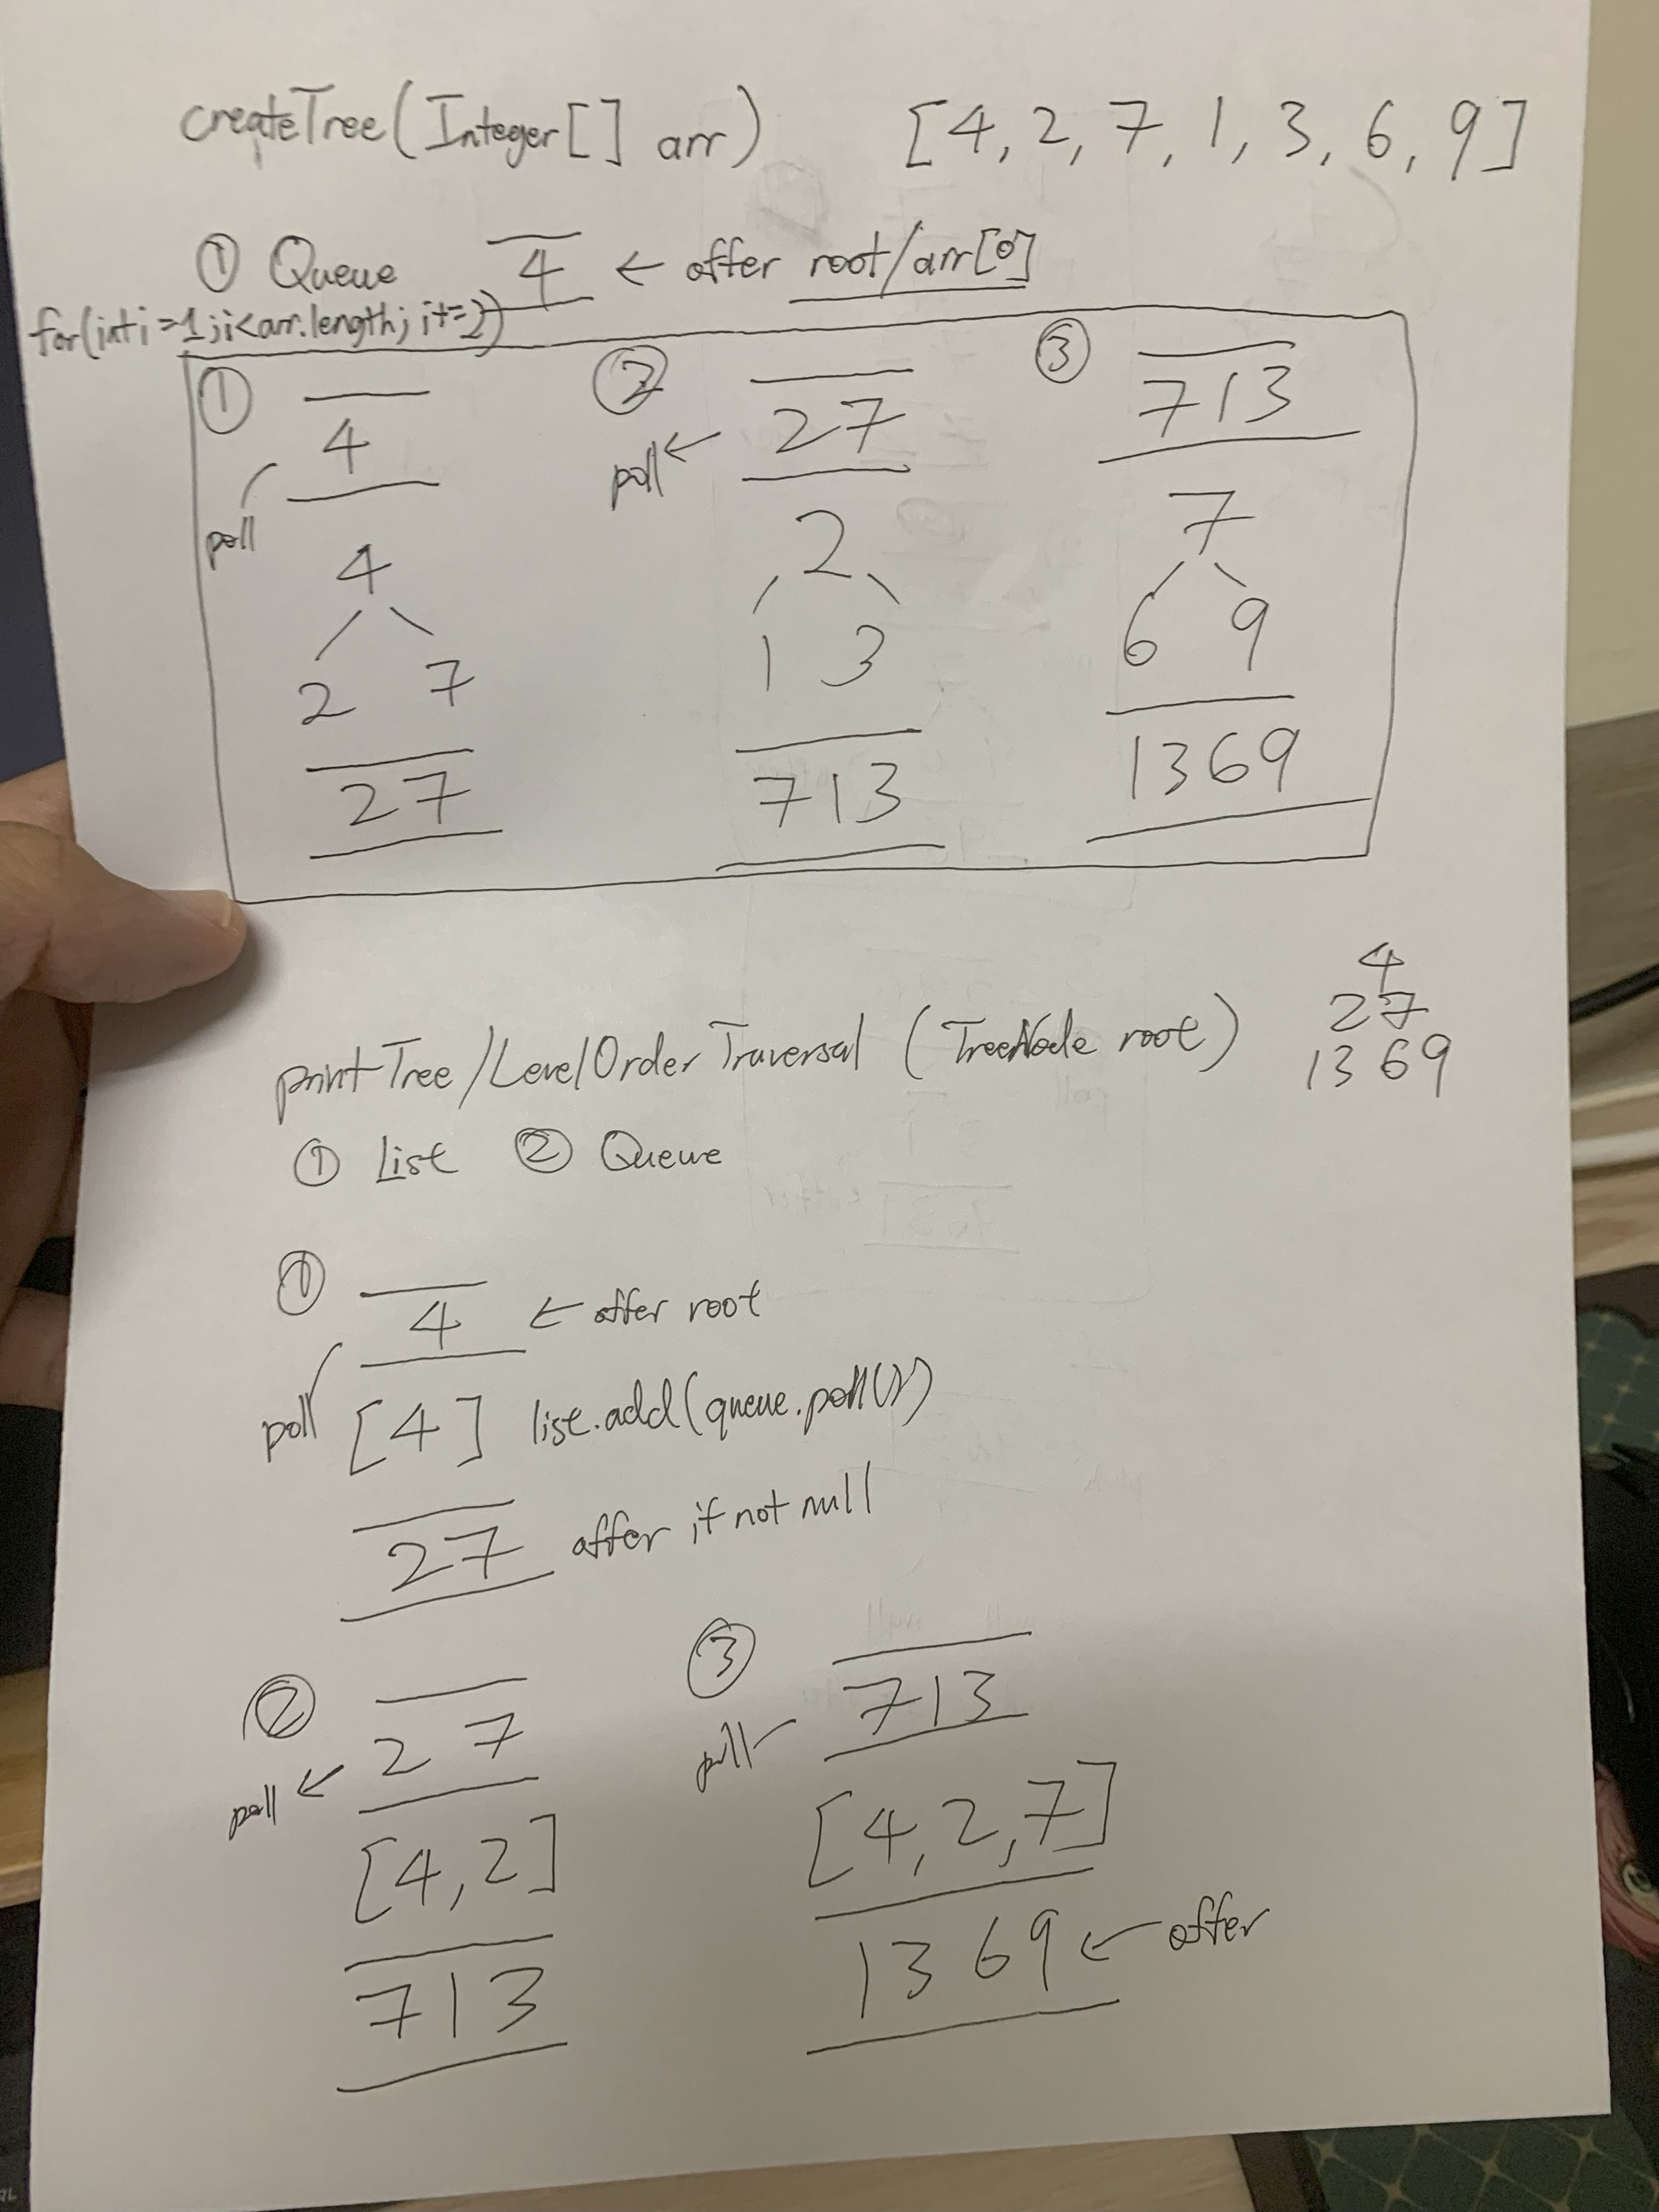 createTree(Integer[] arr) [4, 2, 7, 1, 3, 6, 9]
① Queue 4 ← offer root/arr[0]
for(int i=1;i<arr.length; i+=2)
① ② ③
4 27 713
poll poll←
4 2 7
2 7 1 3 6 9
27 713 1369
4
2 7
1 3 6 9
printTree/LevelOrderTraversal (TreeNode root)
① List ② Queue
①
4 ← offer root
poll [4] list.add(queue.poll())
27 offer if not null
②
2 7
poll ←
[4,2]
713
③
713
poll
[4,2,7]
1369 ← offer